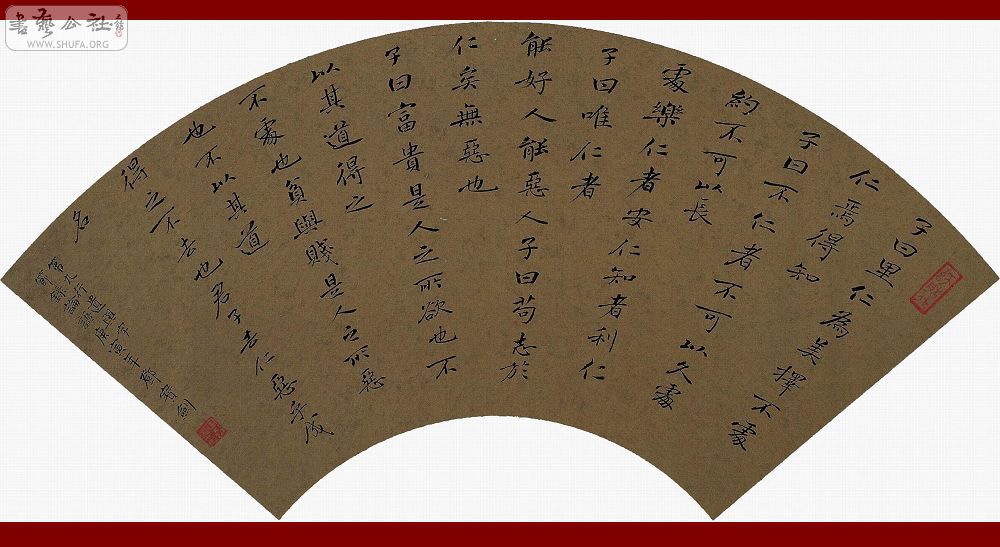 書藝公社
WWW.SHUFA.ORG
子曰里仁為美擇不處
仁焉得知
子曰不仁者不可以久處
約不可以長
處樂仁者安仁知者利仁
子曰唯仁者
能好人能惡人子曰苟志於
仁矣無惡也
子曰富貴是人之所欲也不
以其道得之
不處也貧與賤是人之所惡
也不以其道
得之不去也君子去仁惡乎成
名
第九行遺與字
節錄論語庚寅年鄧寶劍